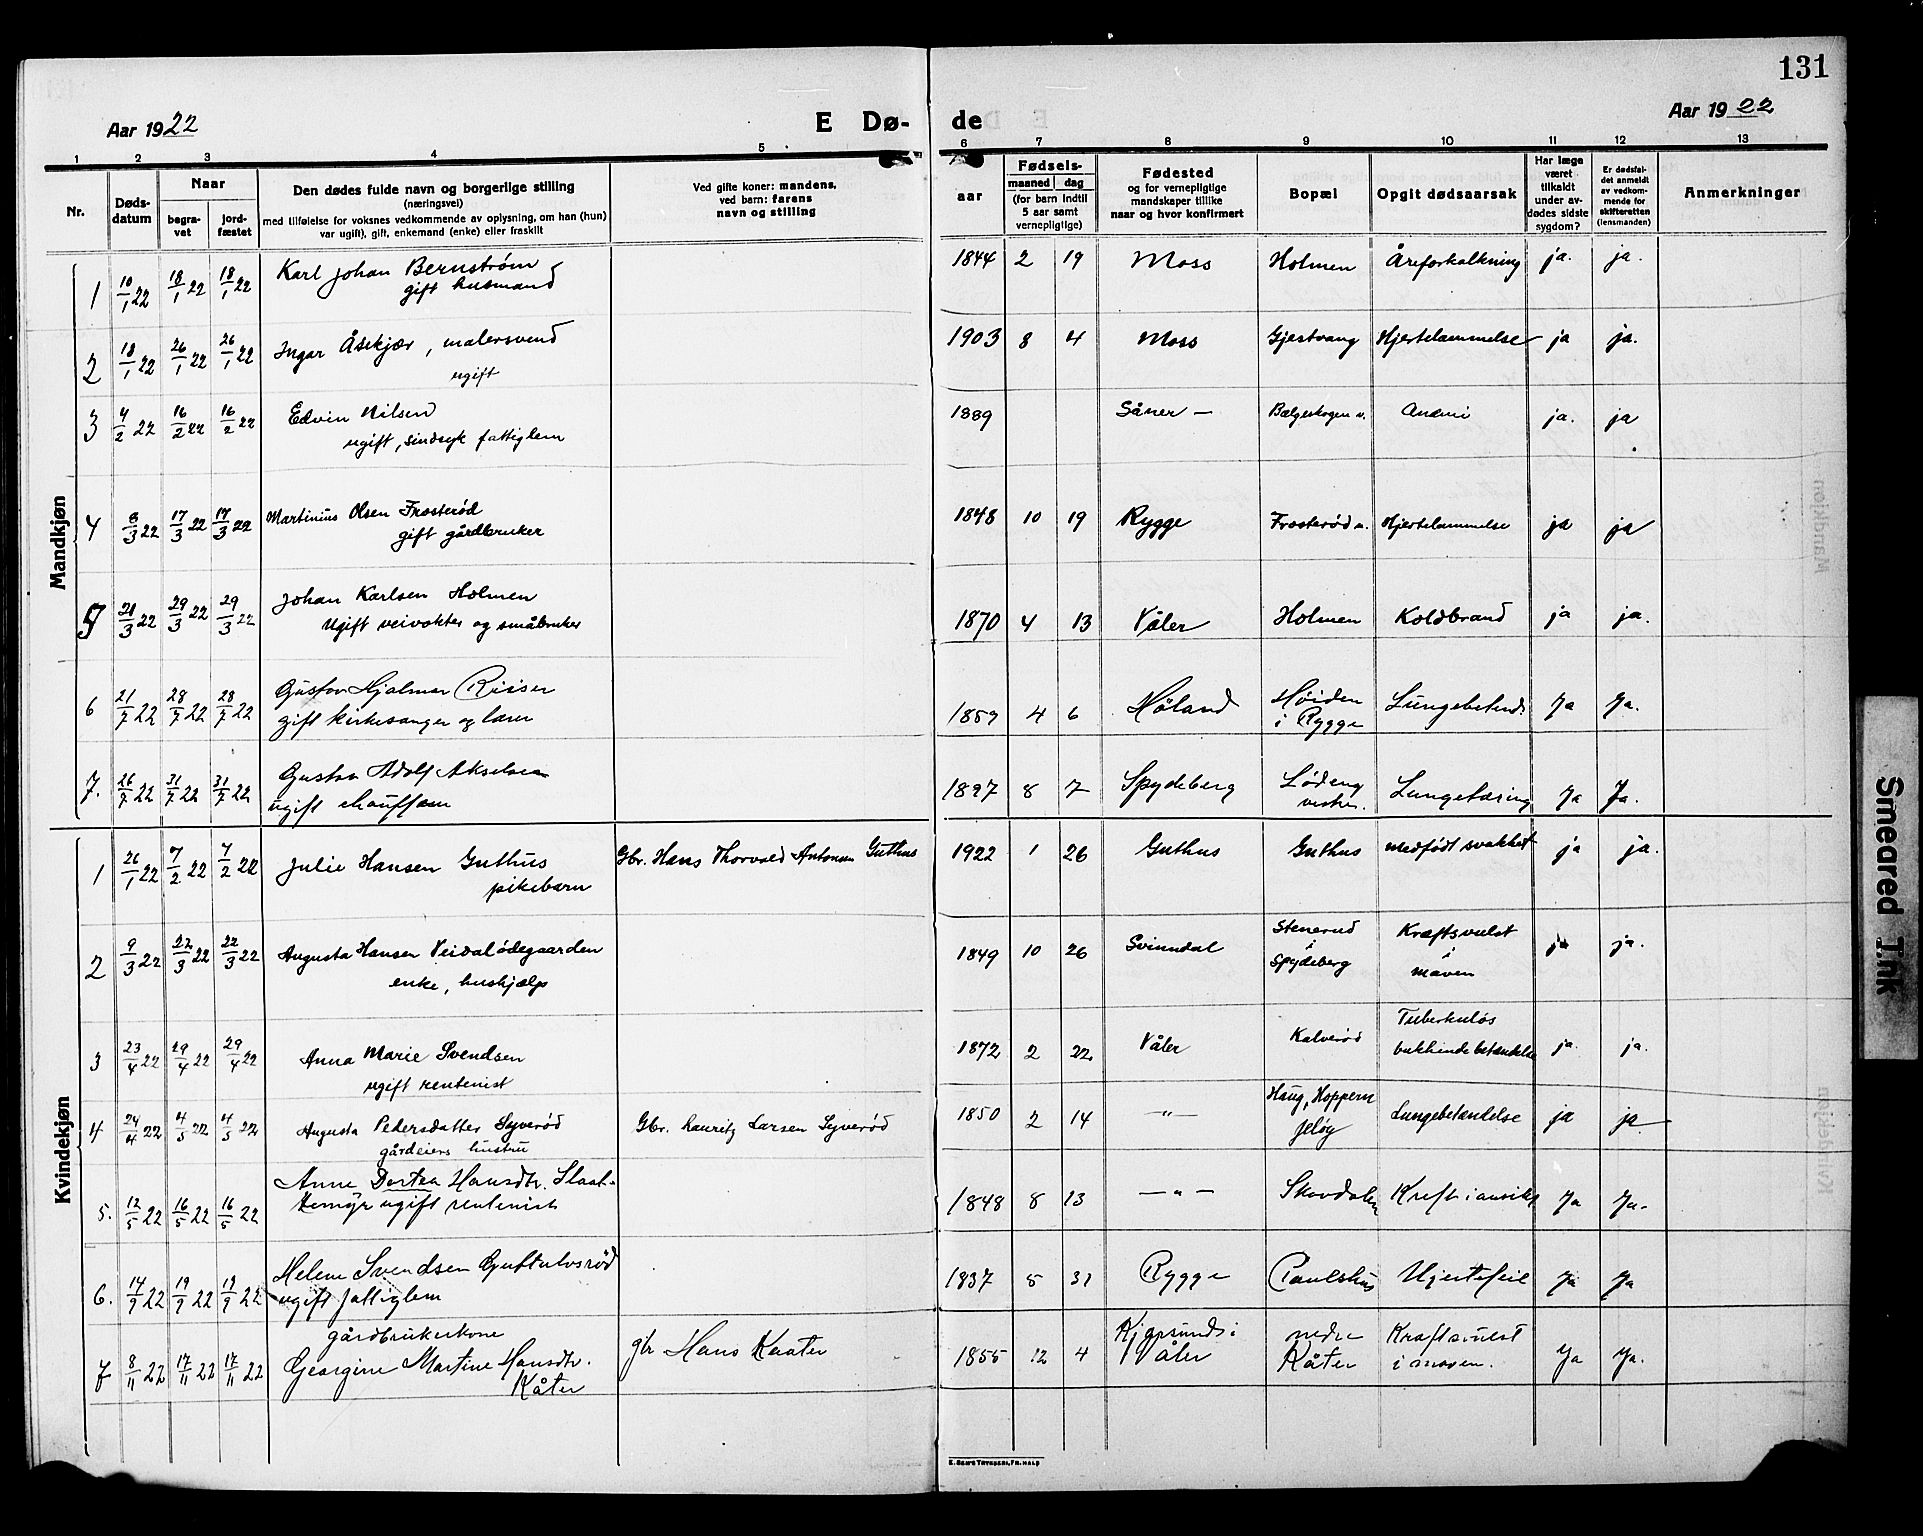 131
Aar 1922
E Dø-
de
Aar 1922
1 2 3 4 5 6 7 8 9 10 11 12 13
Nr.
Døds-
datum
Naar
begra-
vet
jord-
fæstet
Den dødes fulde navn og borgerlige stilling
(næringsvei)
med tilføielse for voksnes vedkommende av oplysning, om han (hun)
var ugift, gift, enkemand (enke) eller fraskilt
Ved gifte koner: mandens,
ved barn: farens
navn og stilling
aar
Fødsels-
maaned dag
(for barn indtil
5 aar samt
vernepligtige)
Fødested
og for vernepligtige
mandskaper tillike
naar og hvor konfirmert
Bopæl
Opgit dødsaarsak
Har læge
været
tilkaldt
under av-
dødes sidste
sygdom?
Er dødsfal-
det anmeldt
av vedkom-
mende for
skifteretten
(lensmanden)
Anmerkninger
Mandkjøn
1 10/1 22 18/1 22 18/1 22 Karl Johan Bernstrøm 1844 2 19 Moss Holmen Åreforkalkning ja. ja.
gift husmand
2 18/1 22 26/1 22 26/1 22 Ingar Åsekjær, malersvend 1903 8 4 Moss Gjestvang Hjertelammelse ja ja.
ugift
3 4/2 22 16/2 22 16/2 22 Edvin Nilsen 1889 Såner — Bælgeskogen v. Anæmi ja. ja
ugift, sindsyk fattiglem
4 8/3 22 17/3 22 17/3 22 Martinius Olsen Frosterød 1848 10 19 Rygge Frosterød n. Hjertelammelse ja ja
gift gårdbruker
5 21/3 22 29/3 22 29/3 22 Johan Karlsen Holmen 1870 4 13 Våler Holmen Koldbrand ja ja.
Ugift veivokter og småbruker
6 21/7 22 28/7 22 28/7 22 Gustav Hjalmar Riiser 1859 4 6 Høland Høiden Lungebetend. Ja Ja.
gift kirkesanger og lærer i Rygge
7. 26/7 22 31/7 22 31/7 22 Gustav Adolf Akselsen 1897 8 7 Spydeberg Lødeng Lungetæring Ja Ja.
ugift chauffør vestre.
Kvindekjøn
1 26/1 22 7/2 22 7/2 22 Julie Hansen Guthus Gbr. Hans Thorvald Antonsen Guthus 1922 1 26 Guthus Guthus medfødt svakhet ja ja.
pikebarn
2 9/3 22 22/3 22 22/3 22 Augusta Hansen Veidalødegaarden 1849 10 26 Svinndal Stenerud i Spydeberg Kræftsvulst i maven ja ja.
enke, hushjælp
3 23/4 22 29/4 22 29/4 22 Anna Marie Svendsen 1872 2 22 Våler Kalverød Tuberkuløs bukhindebetændelse ja. ja.
ugift rentenist
4 24/4 22 4/5 22 4/5 22 Augusta Pedersdatter Syverød Gbr. Lauritz Larsen Syverød 1850 2 14 —"— Haug, Hoppern Jeløy Lungebetændelse ja ja
gårdeiers hustru
5. 12/5 22 16/5 22 16/5 22 Anne Dortea Hansdtr. Slaat- 1848 8 13 —"— Skovdalen Kreft i ansikt Ja Ja.
temyr ugift rentenist
6. 14/9 22 19/9 22 19/9 22 Helene Svendsen Guttulvsrød 1837 5 31 Rygge Paulshus Hjertefeil Ja Ja
ugift fattiglem
gårdbrukerkone
7 8/11 22 17/11 22 17/11 22 Georgine Martine Hansdtr. gbr Hans Kaater 1855 12 4 Kjøpsund i Våler nedre Kåter Kraftsvulst i maven. Ja Ja.
Kåter
Smeared Ink